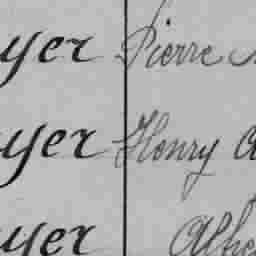 yer Pierre
yer Henry
yer